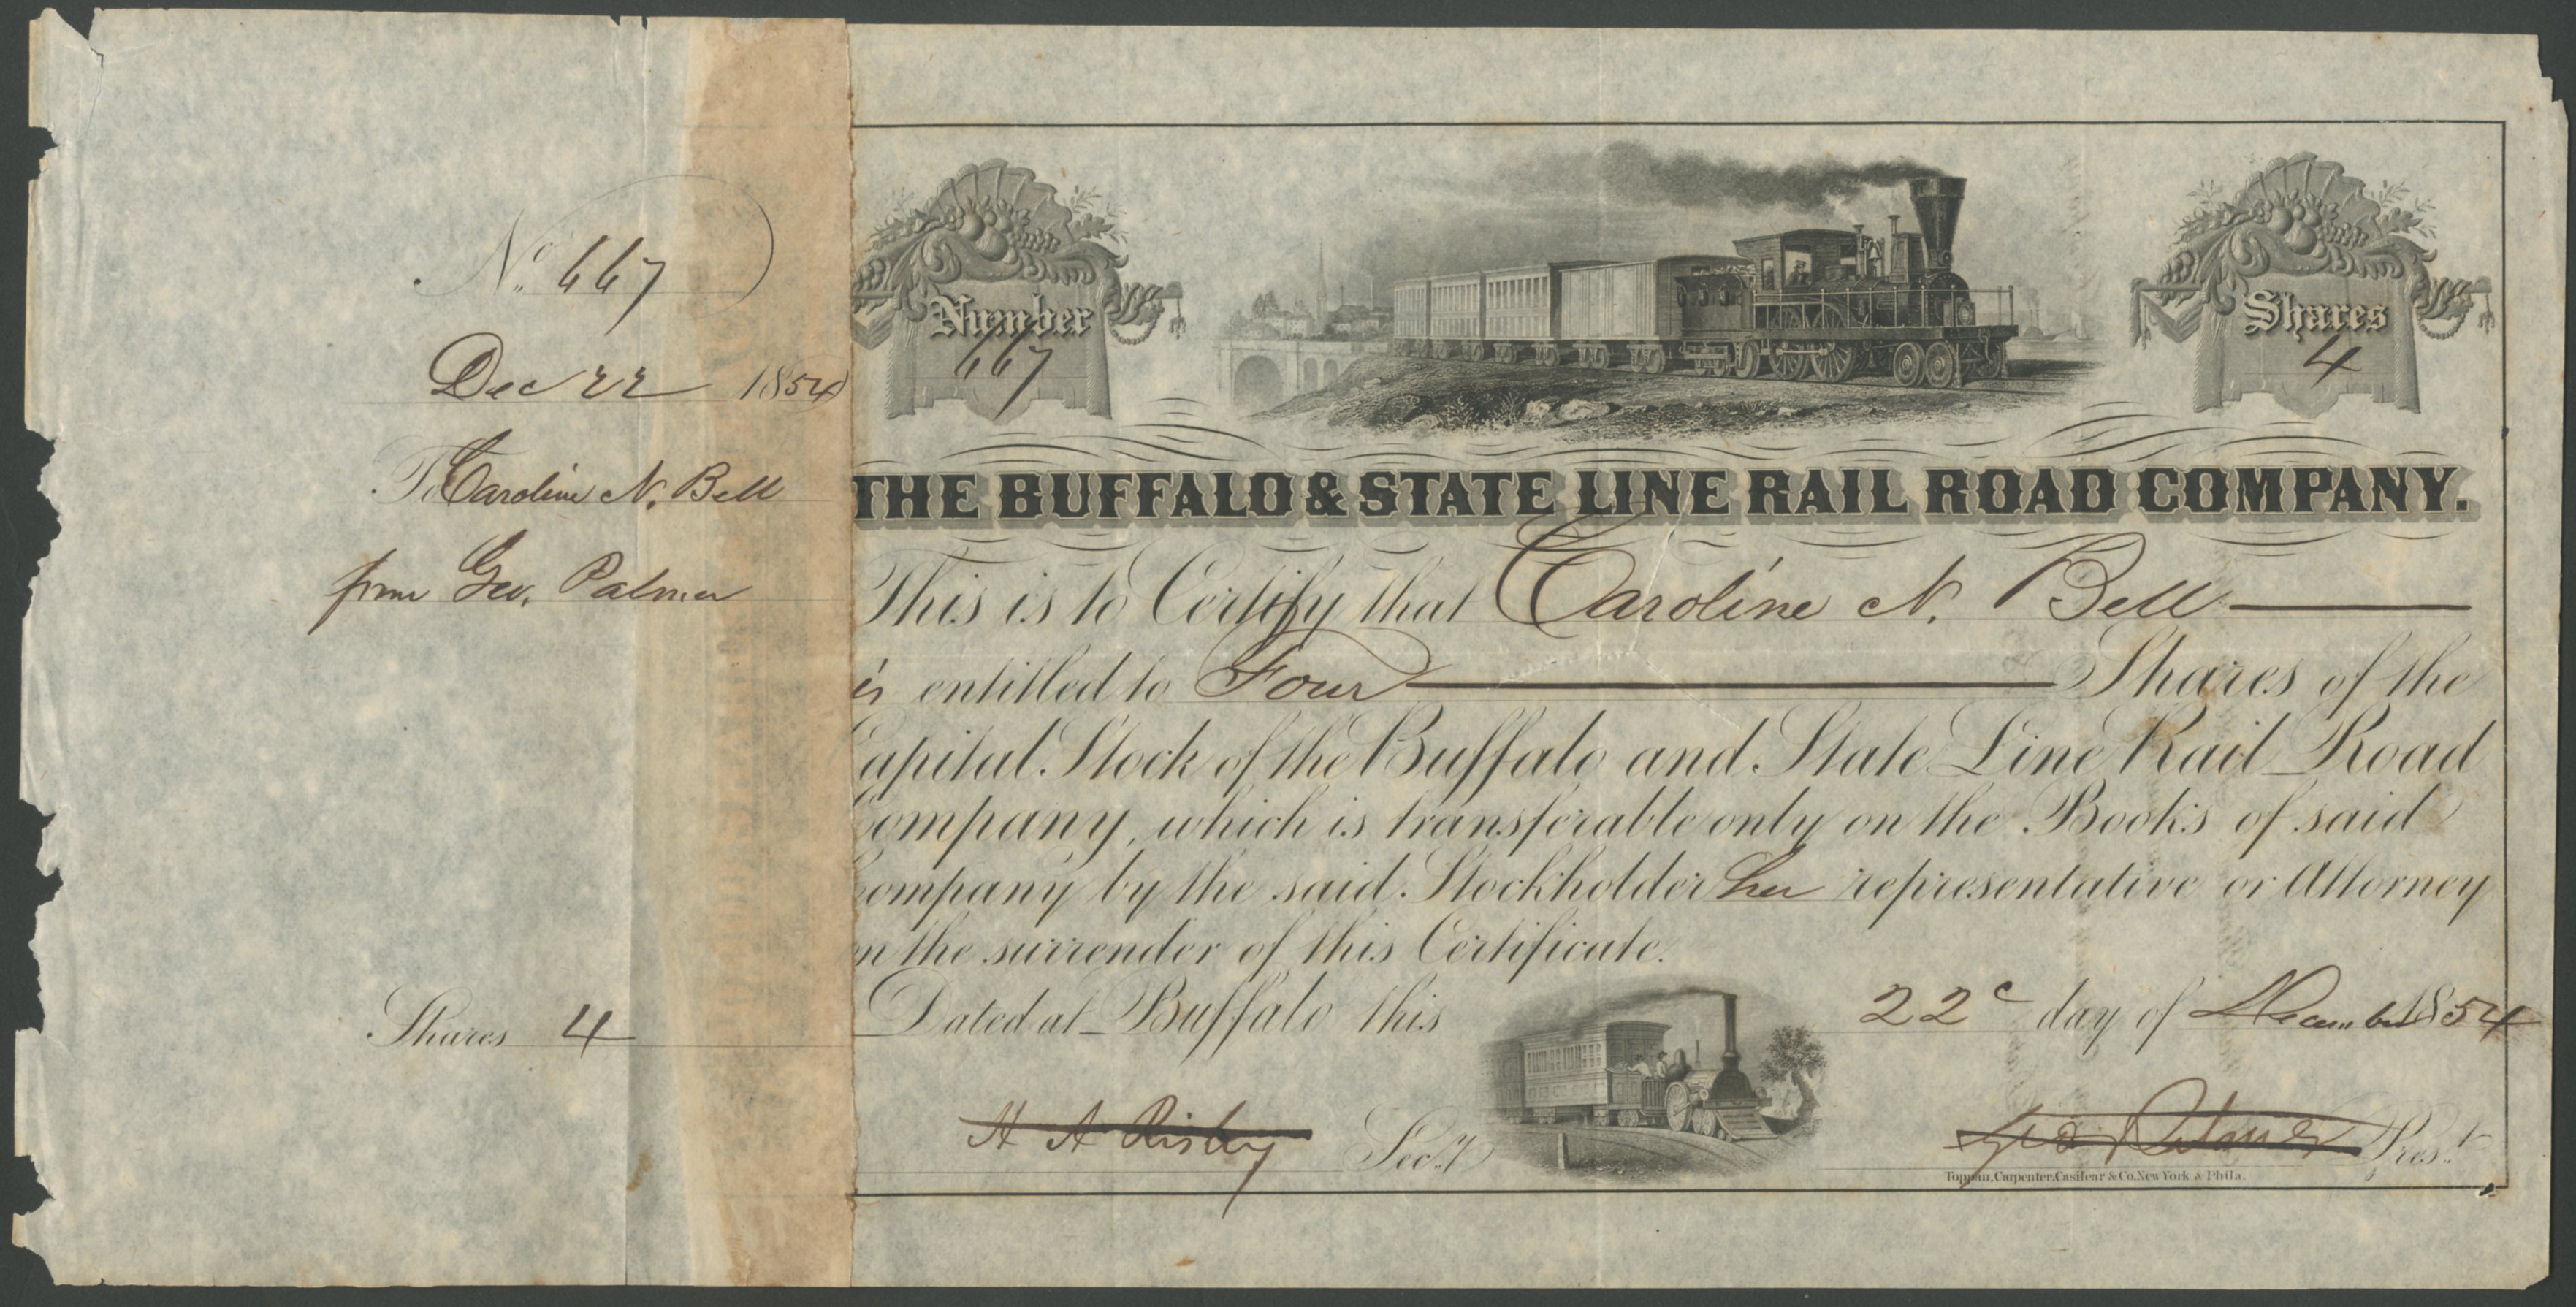 No. 667
Dec 22 1854
To Caroline N. Bell
from Geo. Palmer
Shares 4
Number
667
Shares
4
THE BUFFALO & STATE LINE RAIL ROAD COMPANY.
This is to Certify that Caroline N. Bell
is entitled to Four Shares of the
apital Stock of the Buffalo and State Line Rail Road
ompany, which is transferable only on the Books of said
ompany by the said Stockholder her representative or Attorney
n the surrender of this Certificate.
Dated at Buffalo this 22d day of December 1854
H A Risley Secy.
Geo. Palmer Prest.
Toppan, Carpenter, Casilear & Co. New York & Phila.